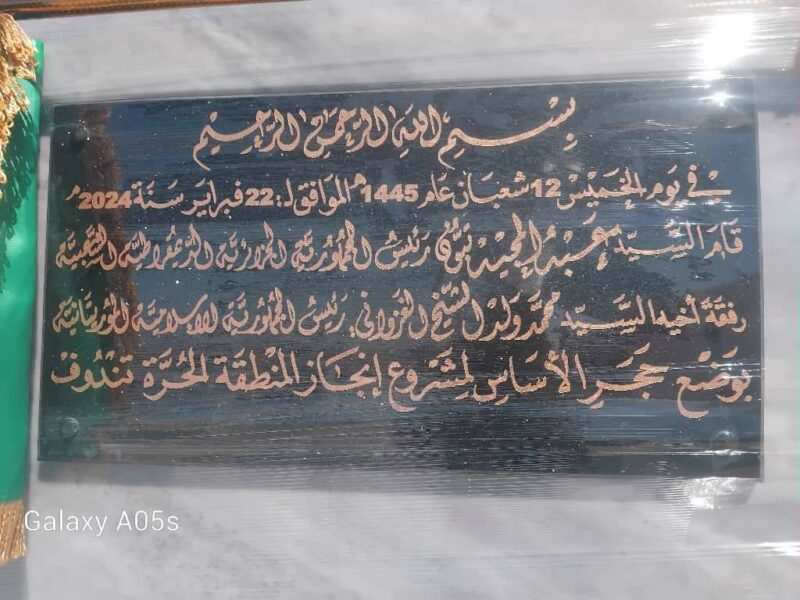 بسم الله الرحمن الرحيم
في يوم الخميس 12 شعبان عام 1445م الموافق لـ: 22 فبراير سنة 2024م
قام السيد عبد المجيد تبون رئيس الجمهورية الجزائرية الديمقراطية الشعبية
رفقة أخيه السيد محمد ولد الشيخ الغزواني رئيس الجمهورية الإسلامية الموريتانية
بوضع حجر الأساس لمشروع إنجاز المنطقة الحرة تندوف
Galaxy A05s